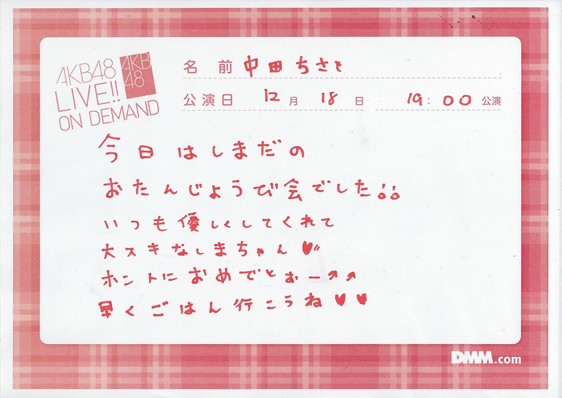 AKB48
LIVE!!
ON DEMAND
AKB
48
名前 中田ちさと
公演日 12月 18日 19:00 公演
今日はしまだの
おたんじょうび会でした
いつも優しくしてくれて
大スキなしまちゃん♥
ホントにおめでとぉー↗↗
早くごはん行こうね♥♥
DMM.com